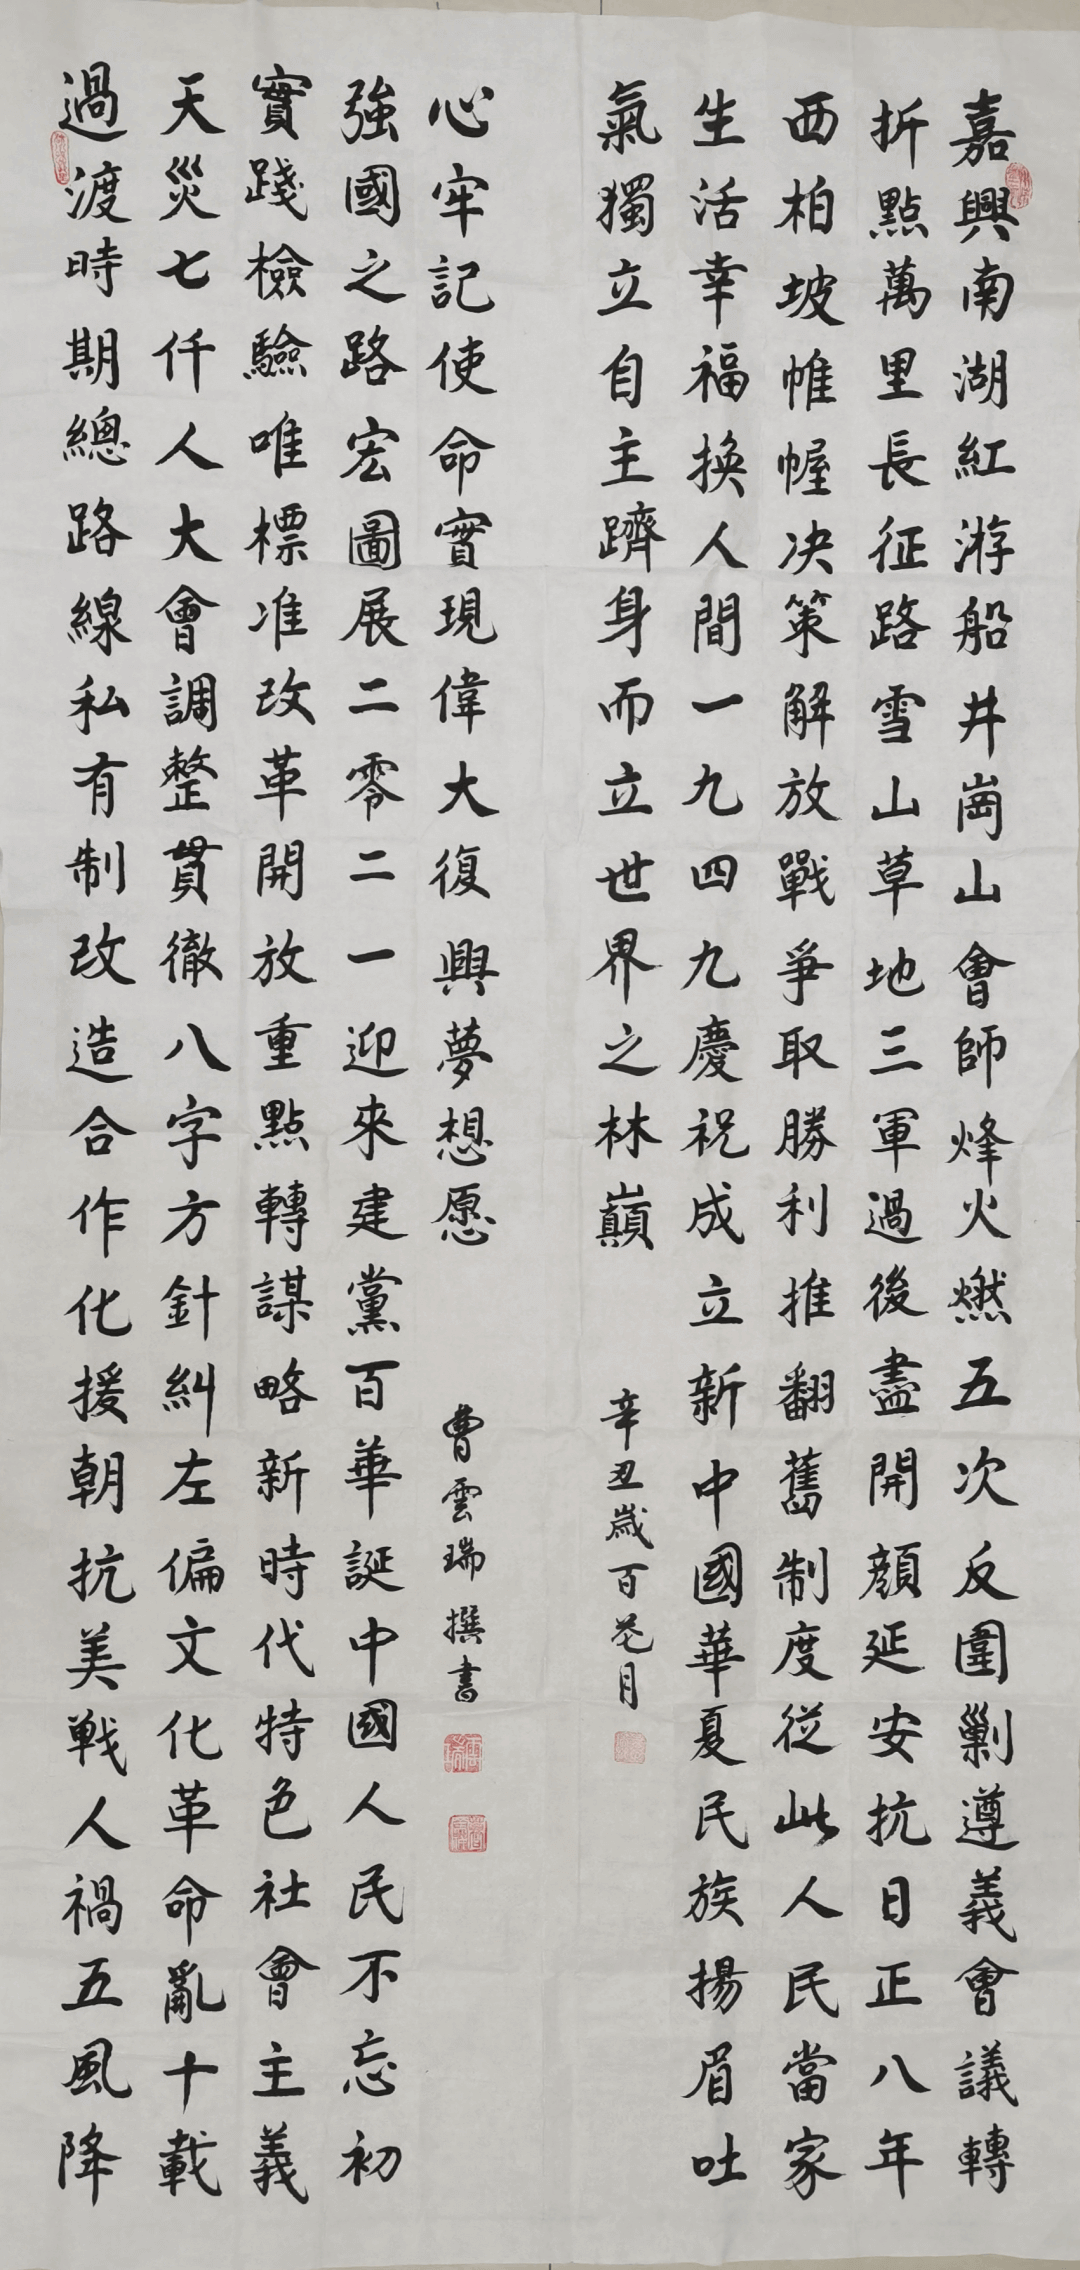 嘉興南湖紅游船井崗山會師烽火燃五次反圍剿遵義會議轉
折點萬里長征路雪山草地三軍過後盡開顔延安抗日正八年
西柏坡帷幄决策解放戰爭取勝利推翻舊制度從此人民當家
生活幸福換人間一九四九慶祝成立新中國華夏民族揚眉吐
氣獨立自主躋身而立世界之林巔
辛丑歲百花月
過渡時期總路線私有制改造合作化援朝抗美戦人禍五風降
天災七仟人大會調整貫徹八字方針糾左偏文化革命亂十載
實踐檢驗唯標准改革開放重點轉謀略新時代特色社會主義
強國之路宏圖展二零二一迎來建黨百華誕中國人民不忘初
心牢記使命實現偉大復興夢想愿
曹雲瑞撰書